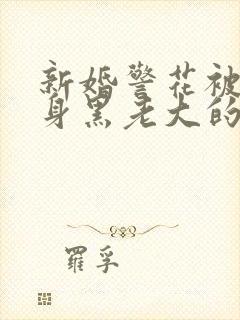 新婚警花被
身黑老大的
羅孚